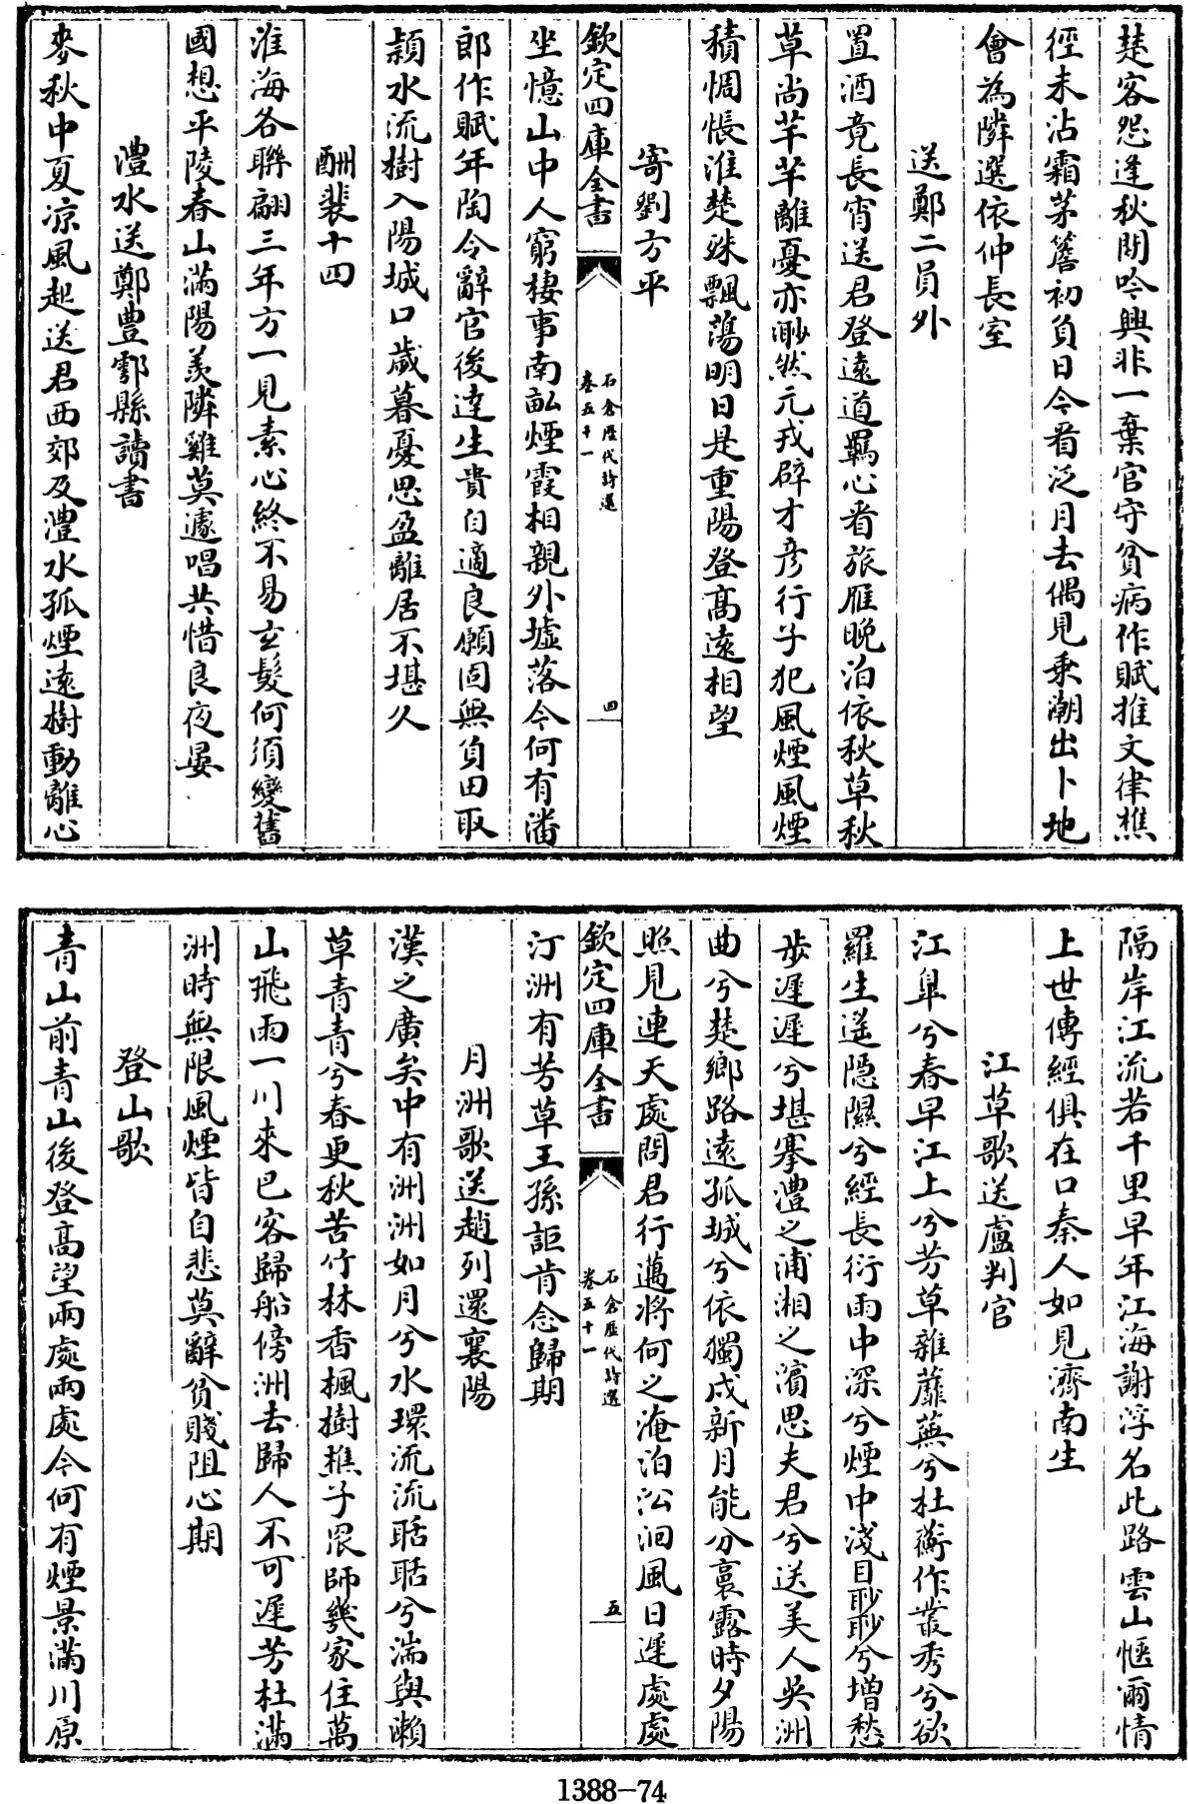 楚客怨逢秋閒吟興非一棄官守貧病作賦推文律樵
徑未沾霜茅簷初負日今看泛月去偶見乗潮出卜地
會為隣選依仲長室
送鄭二員外
置酒竟長宵送君登遠道羈心看旅雁晚泊依秋草秋
草尚芊芊離憂亦渺然元戎辟才彦行子犯風煙風煙
積惆悵淮楚殊飄蕩明日是重陽登髙遠相望
寄劉方平
欽定四庫全書
石倉歴代詩選
卷五十一
四
坐憶山中人窮棲事南畝煙霞相親外墟落今何有潘
郎作賦年陶令辭官後達生貴自適良願固無負田取
潁水流樹入陽城口歲暮憂思盈離居不堪久
酬裴十四
淮海各聨翩三年方一見素心終不易玄髮何須變舊
國想平陵春山滿陽羡隣雞莫遽唱共惜良夜晏
澧水送鄭豊鄠縣讀書
麥秋中夏凉風起送君西郊及澧水孤煙遠樹動離心
隔岸江流若千里早年江海謝浮名此路雲山愜爾情
上世傳經俱在口秦人如見濟南生
江草歌送盧判官
江臯兮春早江上兮芳草雜蘼蕪兮杜蘅作叢秀兮欲
羅生遥隠隰兮經長衍雨中深兮煙中淺目眇眇兮増愁
歩遲遲兮堪搴澧之浦湘之濱思夫君兮送美人吳洲
曲兮楚鄉路逺孤城兮依獨戍新月能分裛露時夕陽
照見連天處問君行邁將何之淹泊㳂洄風日遲處處
欽定四庫全書
石倉歴代詩選
卷五十一
五
汀洲有芳草王孫詎肯念歸期
月洲歌送趙列還襄陽
漢之廣矣中有洲洲如月兮水環流流聒聒兮湍與瀨
草青青兮春更秋苦竹林香楓樹樵子罛師幾家住萬
山飛雨一川來巴客歸船傍洲去歸人不可遲芳杜滿
洲時無限風煙皆自悲莫辭貧賤阻心期
登山歌
青山前青山後登髙望兩處兩處今何有煙景滿川原
1388-74